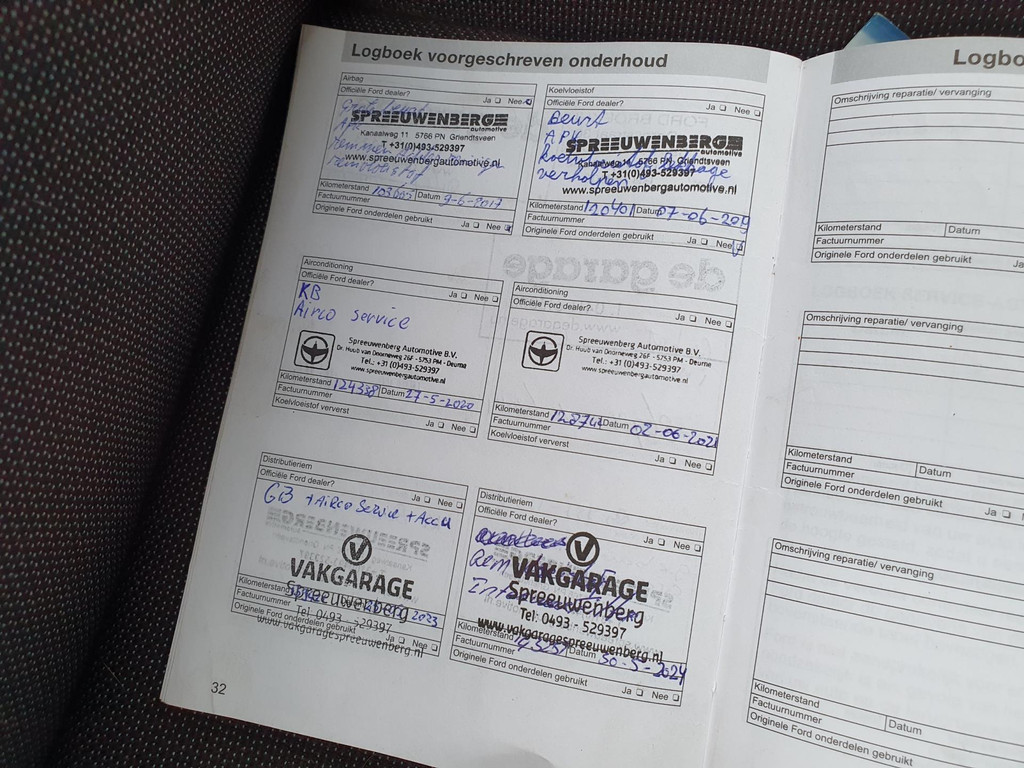 Logboek voorgeschreven onderhoud
Airbag
Officiële Ford dealer?
Ja Nee
Grote beurt
SPREEUWENBERG
automotive
Kanaalweg 11 5766 PN Griendtsveen
APK
T +31(0)493-529397
www.spreeuwenbergautomotive.nl
remvloeistof
Kilometerstand 103665 Datum 7-6-2017
Factuurnummer
Originele Ford onderdelen gebruikt Ja Nee
Koelvloeistof
Officiële Ford dealer?
Ja Nee
Beurt
SPREEUWENBERG
automotive
APK
Kanaalweg 11 5766 PN Griendtsveen
T +31(0)493-529397
verholpen
www.spreeuwenbergautomotive.nl
Kilometerstand 120401 Datum 07-06-2019
Factuurnummer
Originele Ford onderdelen gebruikt Ja Nee
Airconditioning
Officiële Ford dealer?
Ja Nee
KB
Airco service
Spreeuwenberg Automotive B.V.
Dr. Huub van Doorneweg 26F - 5753 PM - Deurne
Tel.: +31 (0)493-529397
www.spreeuwenbergautomotive.nl
Kilometerstand 124388 Datum 27-5-2020
Factuurnummer
Koelvloeistof ververst Ja Nee
Airconditioning
Officiële Ford dealer?
Ja Nee
Spreeuwenberg Automotive B.V.
Dr. Huub van Doorneweg 26F - 5753 PM - Deurne
Tel.: +31 (0)493-529397
www.spreeuwenbergautomotive.nl
Kilometerstand Datum 02-06-2021
Factuurnummer
Koelvloeistof ververst Ja Nee
Distributieriem
Officiële Ford dealer?
Ja Nee
GB + Airco Service + Accu
VAKGARAGE
Spreeuwenberg
Kilometerstand 2023
Tel. 0493 - 529397
Factuurnummer
www.vakgaragespreeuwenberg.nl
Originele Ford onderdelen gebruikt Ja Nee
Distributieriem
Officiële Ford dealer?
Ja Nee
VAKGARAGE
Spreeuwenberg
Tel. 0493 - 529397
www.vakgaragespreeuwenberg.nl
Kilometerstand Datum 30-5-2024
Factuurnummer
Originele Ford onderdelen gebruikt Ja Nee
32
Logbo
Omschrijving reparatie/ vervanging
Kilometerstand Datum
Factuurnummer
Originele Ford onderdelen gebruikt Ja
Omschrijving reparatie/ vervanging
Kilometerstand Datum
Factuurnummer
Originele Ford onderdelen gebruikt Ja
Omschrijving reparatie/ vervanging
Kilometerstand Datum
Factuurnummer
Originele Ford onderdelen gebruikt